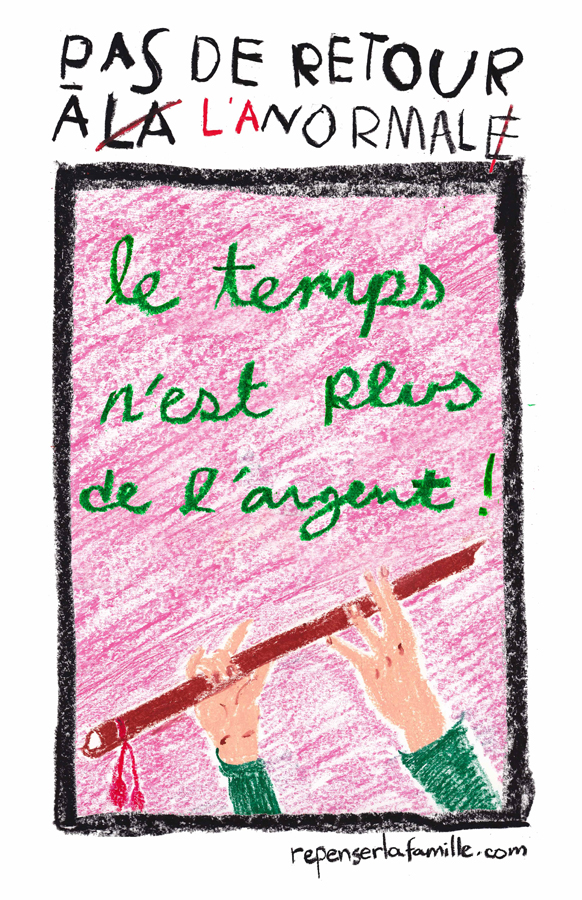 PAS DE RETOUR
À LA L'ANORMALE
le temps
n'est plus
de l'argent !
repenserlafamille.com